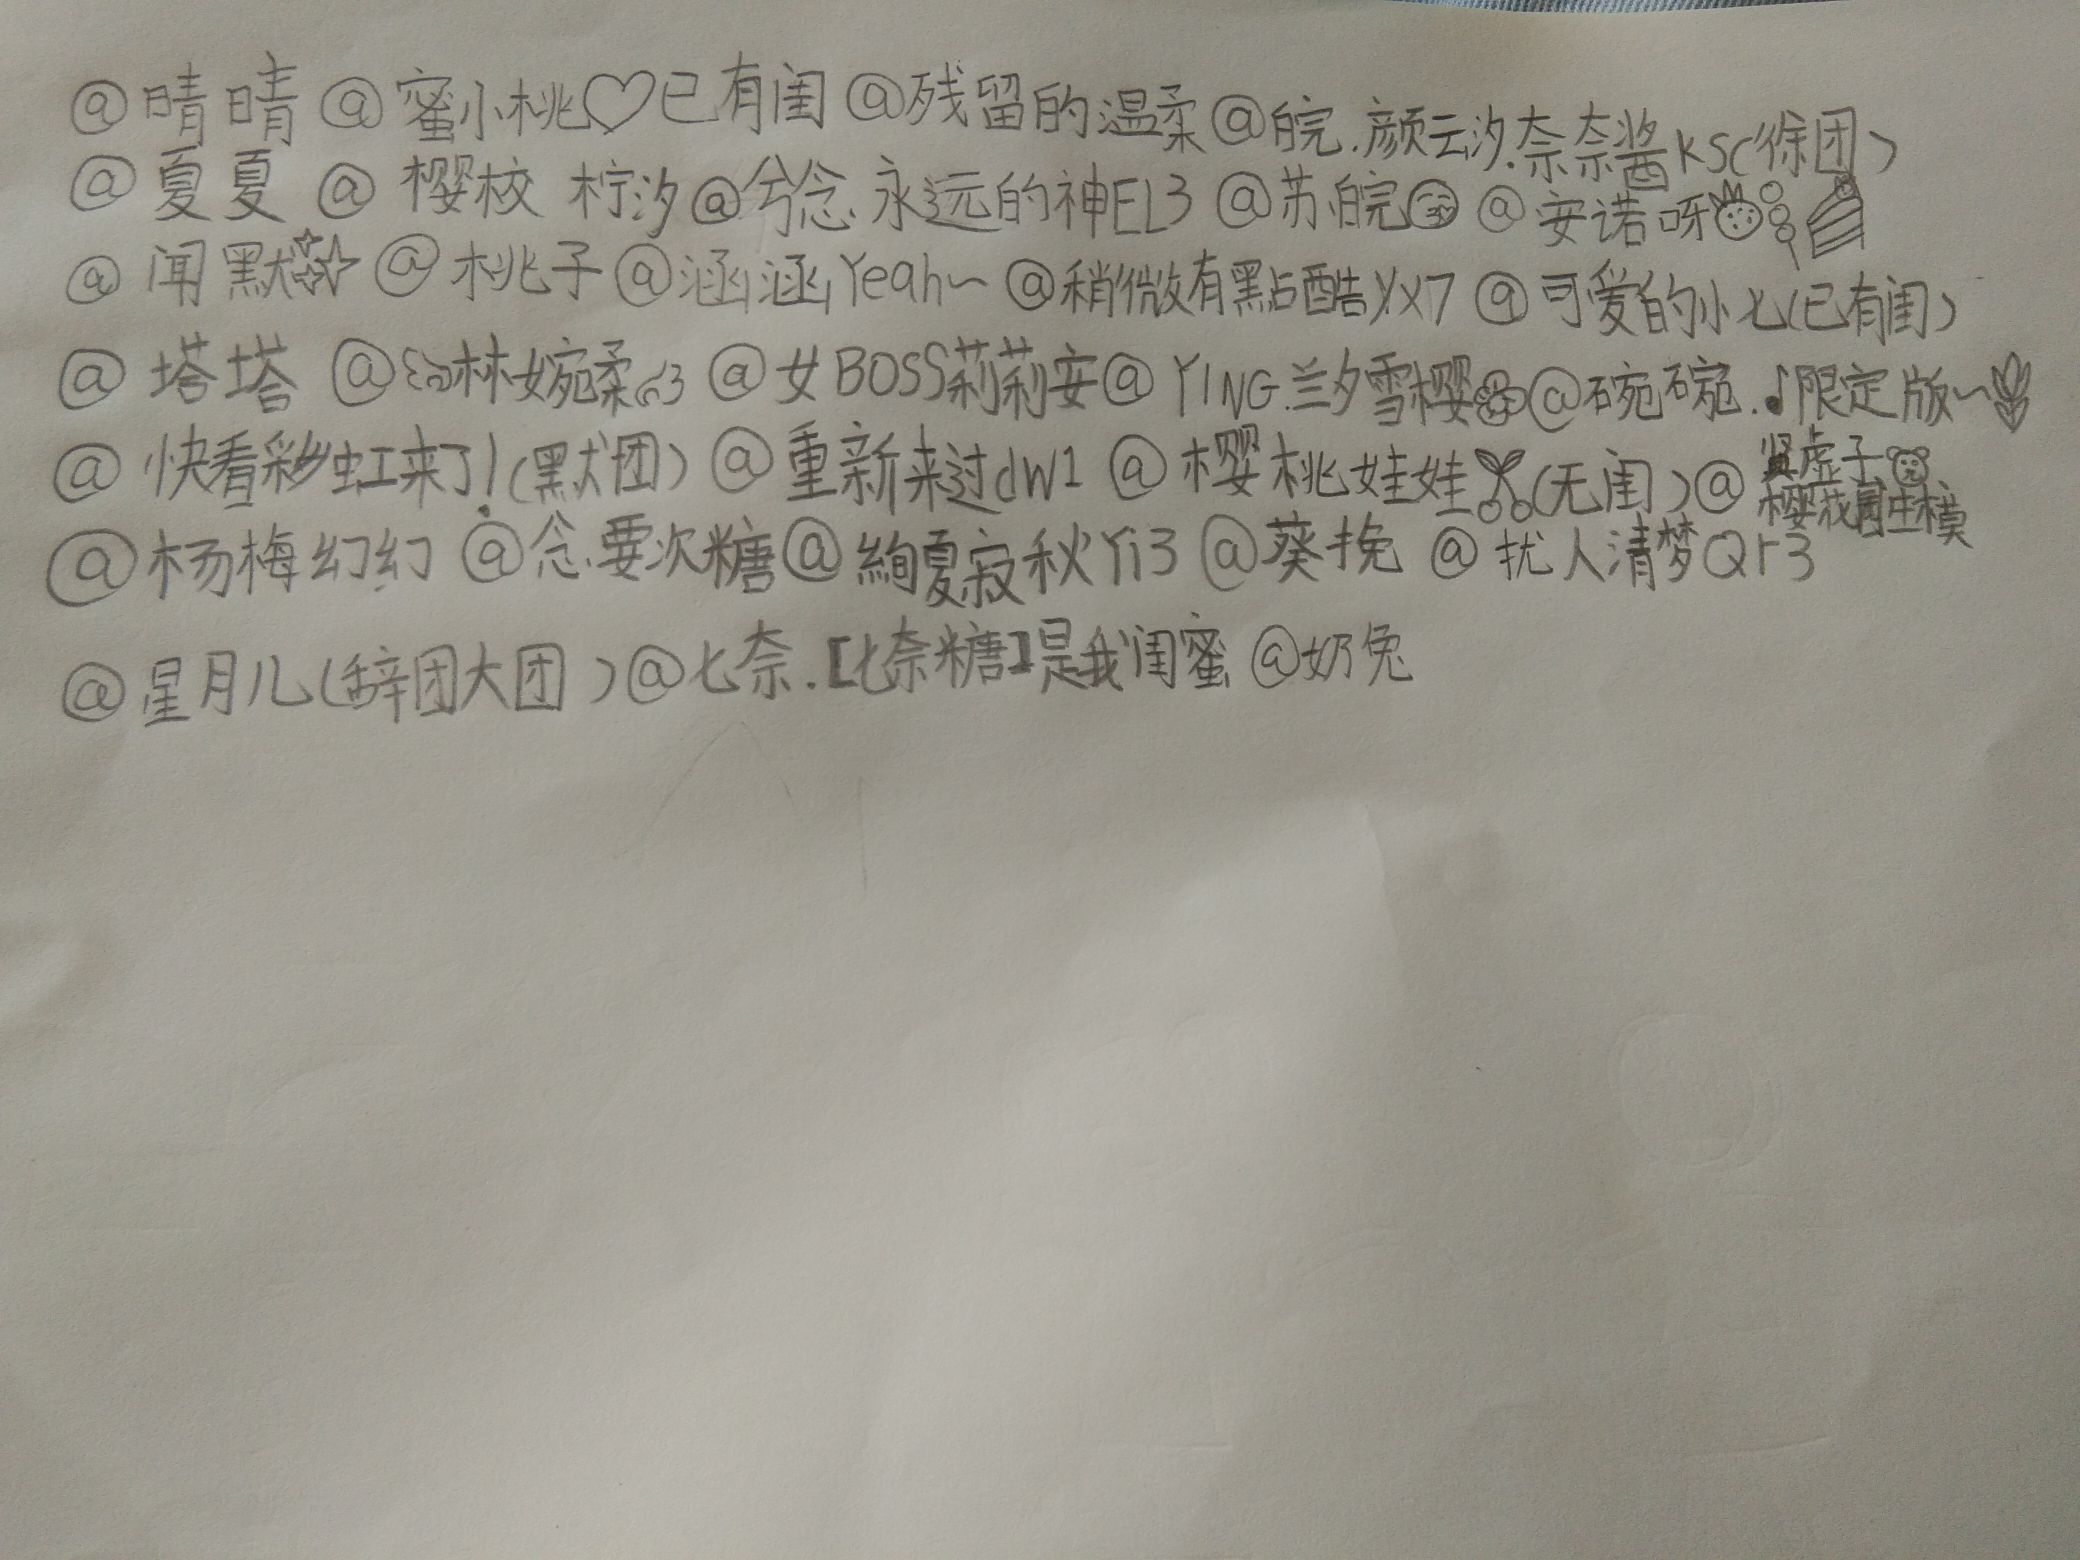 @晴晴 @蜜小桃♡已有闺 @残留的温柔@皖.颜云汐.奈奈酱KS(徐团)
@夏夏 @樱校 柠汐@兮念.永远的神EL3 @苏.皖 @安诺呀
@闻默 @桃子@涵涵Yeah~ @稍微有點酷yx7 @可爱的小七(已有闺)
@塔塔 @林婉柔 @女BOSS莉莉安@YING.兰夕雪樱@碗碗.♪限定版~
@快看彩虹来了!(默团) @重新来过dW1 @樱桃娃娃(无闺)@肾虚子
樱花园生模
@杨梅幻幻 @念.要次糖@絢夏寂秋Yi3 @葵挽 @扰人清梦Qr3
@星月儿(辞团大团)@七奈.【七奈糖】是我闺蜜 @奶兔